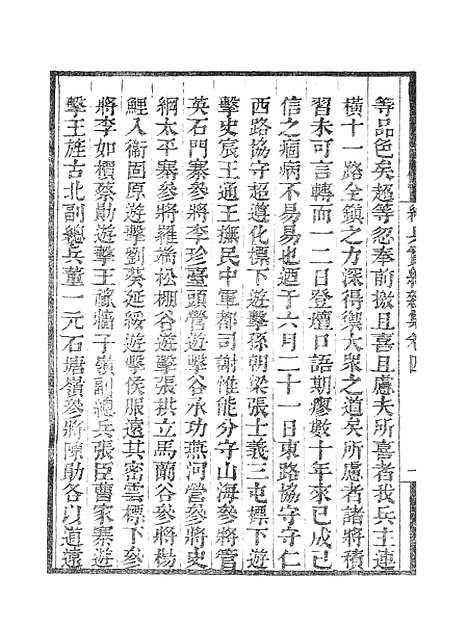 練兵實紀雜集卷四 一
等品色矣超等忽奉前檄且喜且慮夫所喜者我兵主連
橫十一路全鎮之力深得禦大衆之道矣所慮者諸將積
習未可言轉而一二日登壇口語期瘳數十年來已成已
信之痼病不易易也迺于六月二十一日東路協守守仁
西路協守超遵化標下遊擊孫朝梁張士義三屯標下遊
擊史宸王通王撫民中軍都司謝惟能分守山海參將管
英石門寨參將李珍臺頭營遊擊谷承功燕河營參將史
綱太平寨參將羅端松棚谷遊擊張拱立馬蘭谷參將楊
鯉入衞固原遊擊劉葵延綏遊擊侯服遠其密雲標下參
將李如檟蔡勛遊擊王祿牆子嶺副總兵張臣曹家寨遊
擊王旌古北副總兵董一元石塘嶺參將陳勛各以道遠